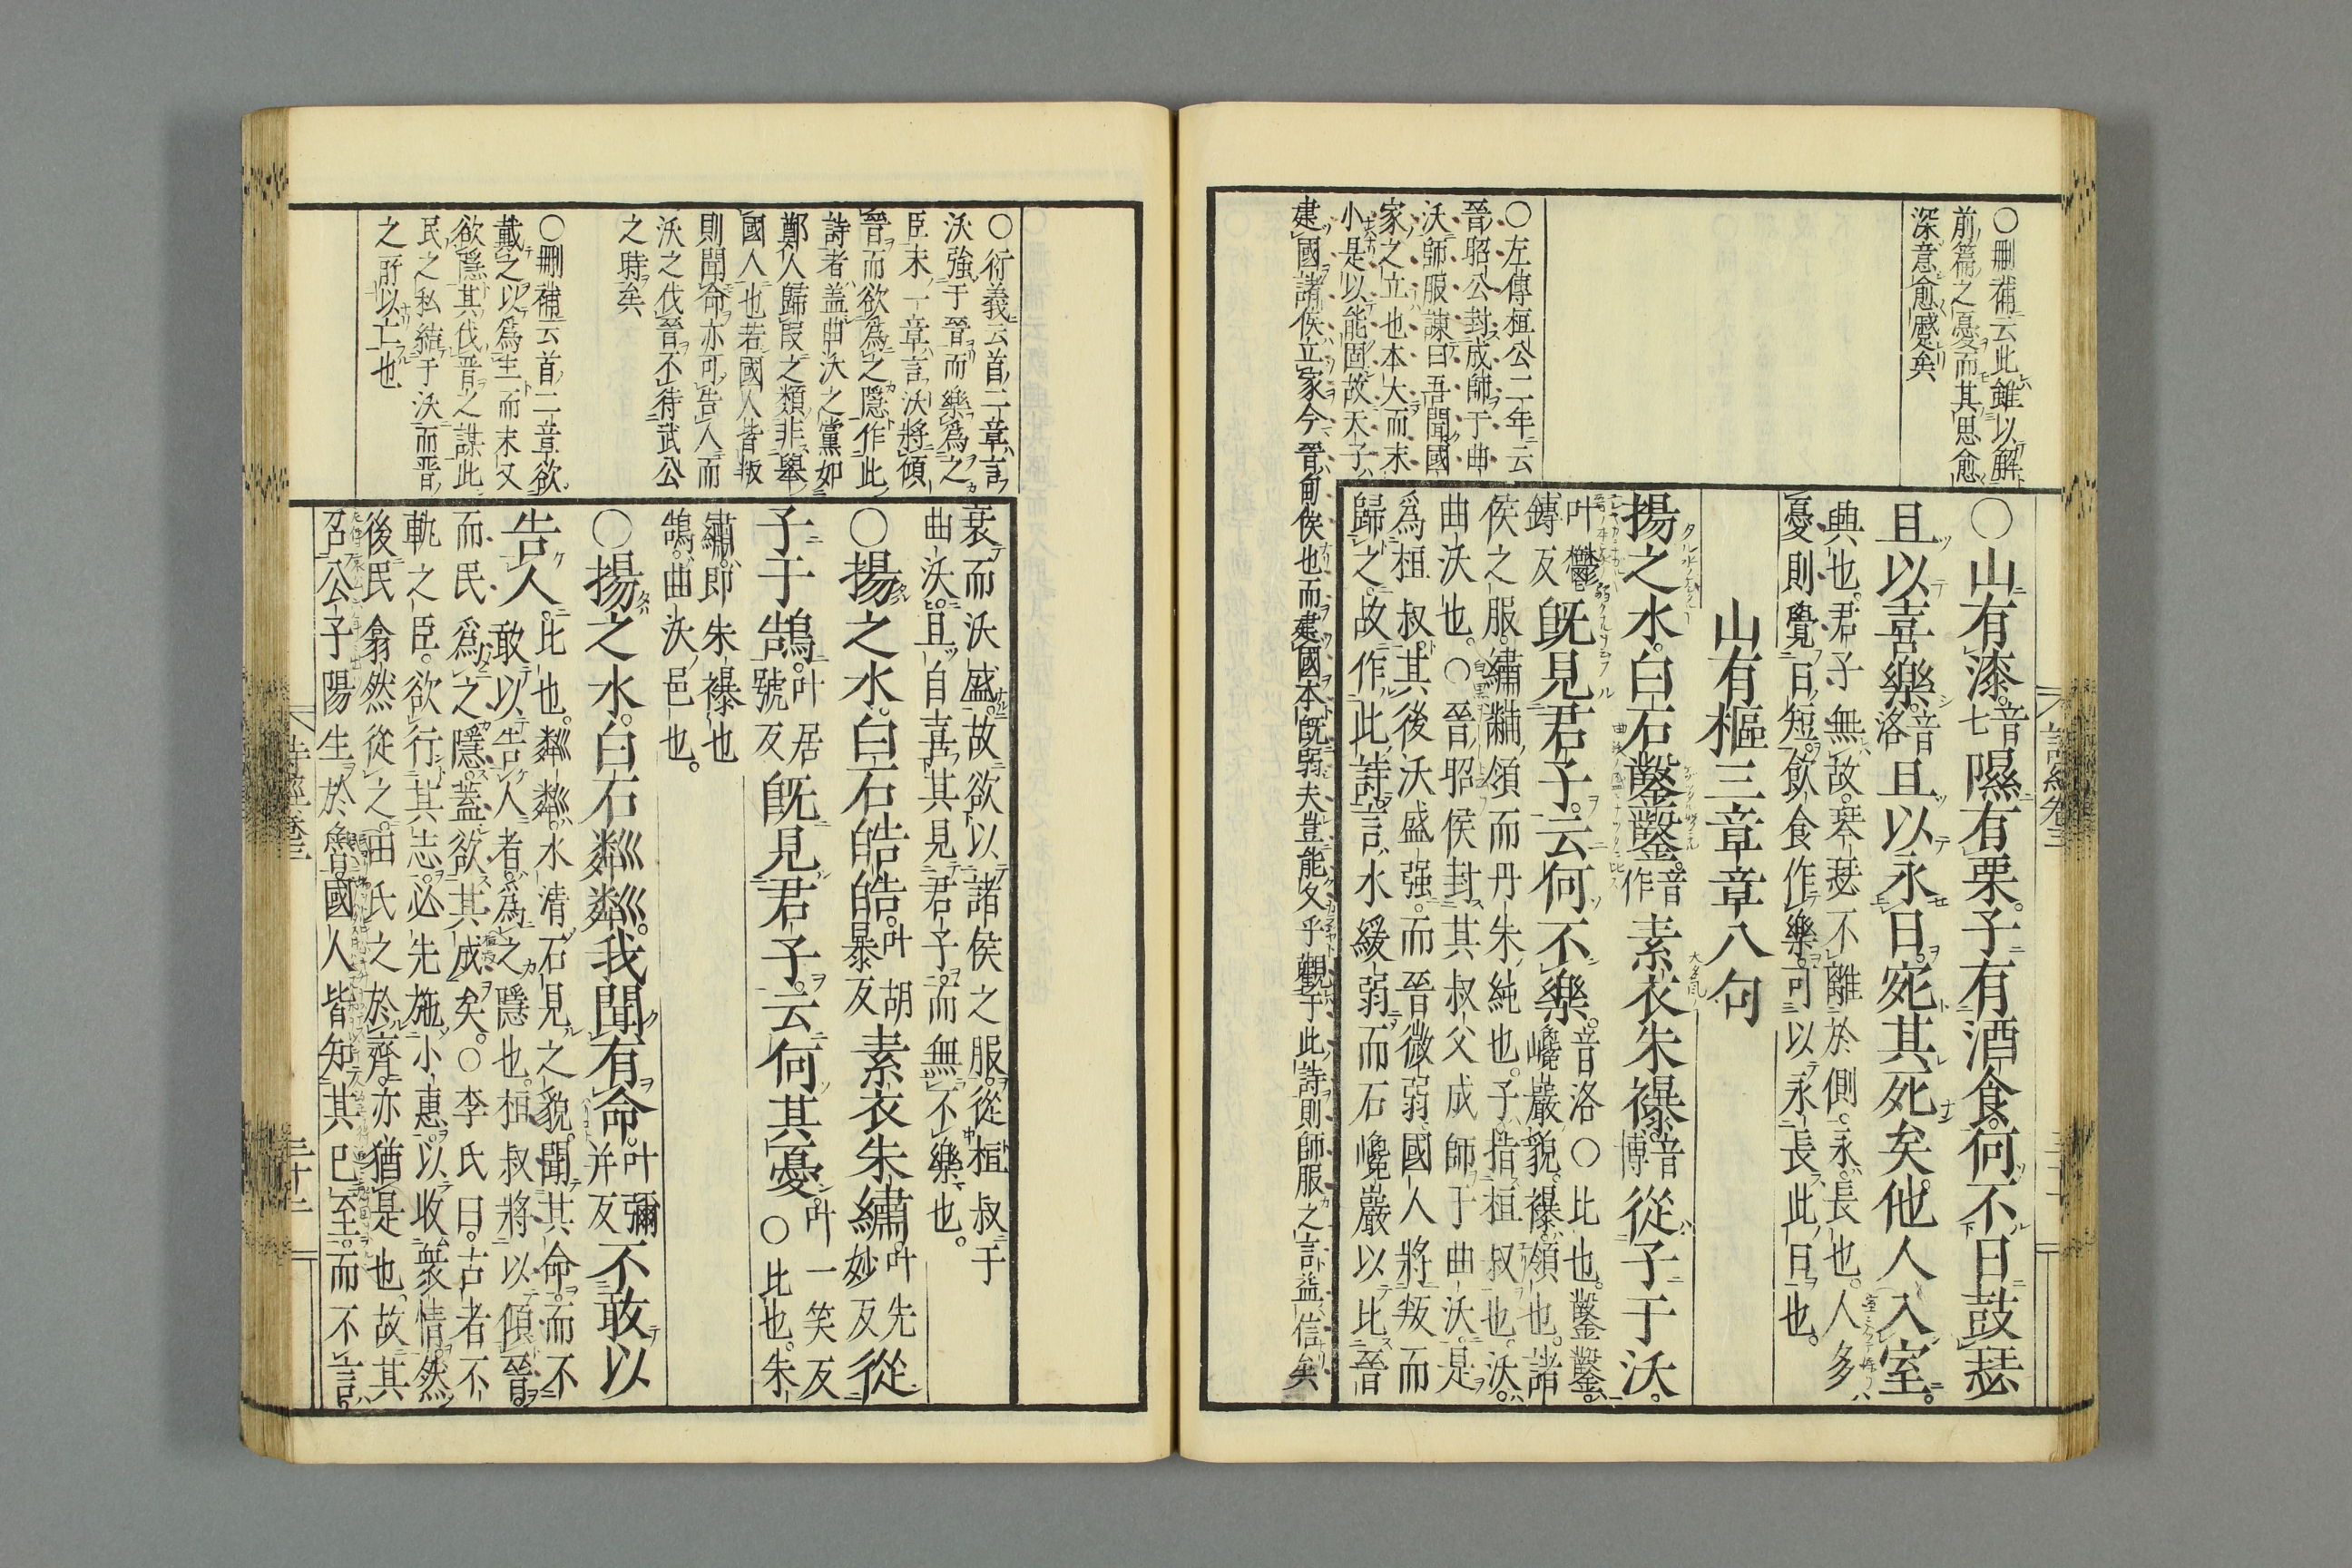 〇刪補云此雖以解
前篇之憂而其思愈
深意愈蹙矣
〇左傳桓公二年云
晉昭公封成師于曲
沃師服諫曰吾聞國
家之立也本大而末
小是以能固故天子
建國諸侯立家今晉甸侯也而建國本既弱矣豈能久乎觀于此詩則師服之言益信矣
〇山有漆音七隰有栗子有酒食何不日鼓瑟
且以喜樂音洛且以永日宛其死矣他人入室
興也君子無故琴瑟不離於側永長也人多
憂則覺日短飲食作樂可以永長此日也
山有樞三章章八句
揚之水白石鑿鑿音作素衣朱襮音博從子于沃
叶鬱
鎛反既見君子云何不樂音洛〇比也鑿鑿
巉巖貌襮領也諸
侯之服繡黼領而丹朱純也子指桓叔也沃
曲沃也〇晉昭侯封其叔父成師于曲沃是
爲桓叔其後沃盛强而晉微弱國人將叛而
歸之故作此詩言水緩弱而石巉巖以比晉
〇衍義云首二章言
沃強于晉而樂爲之
臣末一章言沃將傾
晉而欲爲之隱作此
詩者蓋曲沃之黨如
鄭人歸段之類非舉
國人也若國人皆叛
則聞命亦可告人而
沃之伐晉不待武公
之時矣
〇刪補云首二章欲
戴之以爲主而末又
欲隱其伐晉之謀此
民之私結于沃而晉
之所以亡也
衰而沃盛故欲以諸侯之服從桓叔于
曲沃且自喜其見君子而無不樂也
〇揚之水白石皓皓叶胡暴反素衣朱繡叶先妙反從
子于鵠叶居號反既見君子云何其憂叶一笑反〇比也朱
繡即朱襮也
鵠曲沃邑也
〇揚之水白石粼粼我聞有命叶彌并反不敢以
告人比也粼粼水清石見之貌聞其命而不
敢以告人者爲之隱也桓叔將以傾晉
而民爲之隱蓋欲其成矣〇李氏曰古者不
軌之臣欲行其志必先施小惠以收衆情然
後民翕然從之田氏之於齊亦猶是也故其
召公子陽生於魯國人皆知其已至而不言
詩經卷三
三十二